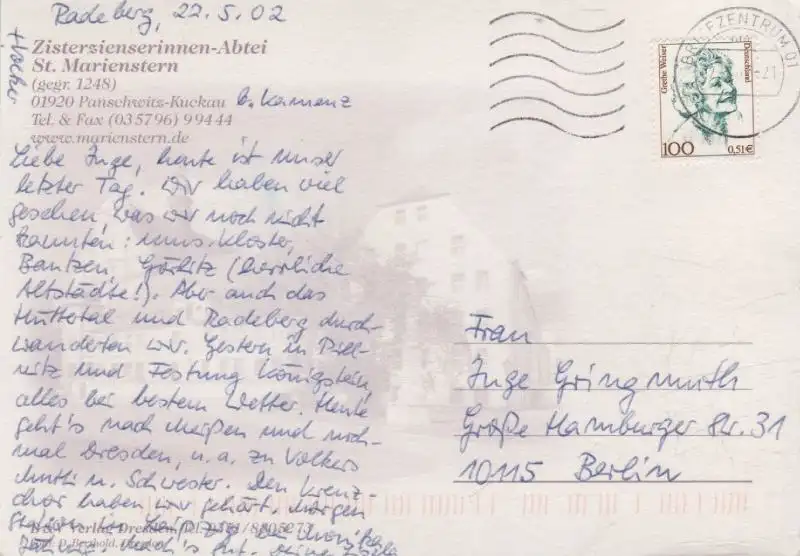 Radeberg, 22.5.02
Zisterzienserinnen-Abtei
St. Marienstern
(gegr. 1248)
01920 Panschwitz-Kuckau b. Kamenz
Tel. & Fax (03 57 96) 9 94 44
www.marienstern.de
Liebe Inge, heute ist unser
letzter Tag. Wir haben viel
gesehen, was wir noch nicht
kannten: uns. Kloster,
Bautzen, Görlitz (herrliche
Altstädte!). Aber auch das
Hüttetal und Radeberg durch-
wanderten wir. Gestern in Pill-
nitz und Festung Königstein,
alles bei bestem Wetter. Heute
geht's nach Meißen und noch-
mal Dresden, u.a. zu Volkers
Mutti u. Schwester. Den Kreuz-
chor haben wir gehört. Morgen
in Leipzig
mach's gut. Deine
B&V Verlag Dresden, Tel. 0351/8805073
BRIEFZENTRUM 01
Grethe Weiser
Deutschland
100
0,51€
Frau
Inge Gringmuth
Große Hamburger Str. 31
10115 Berlin